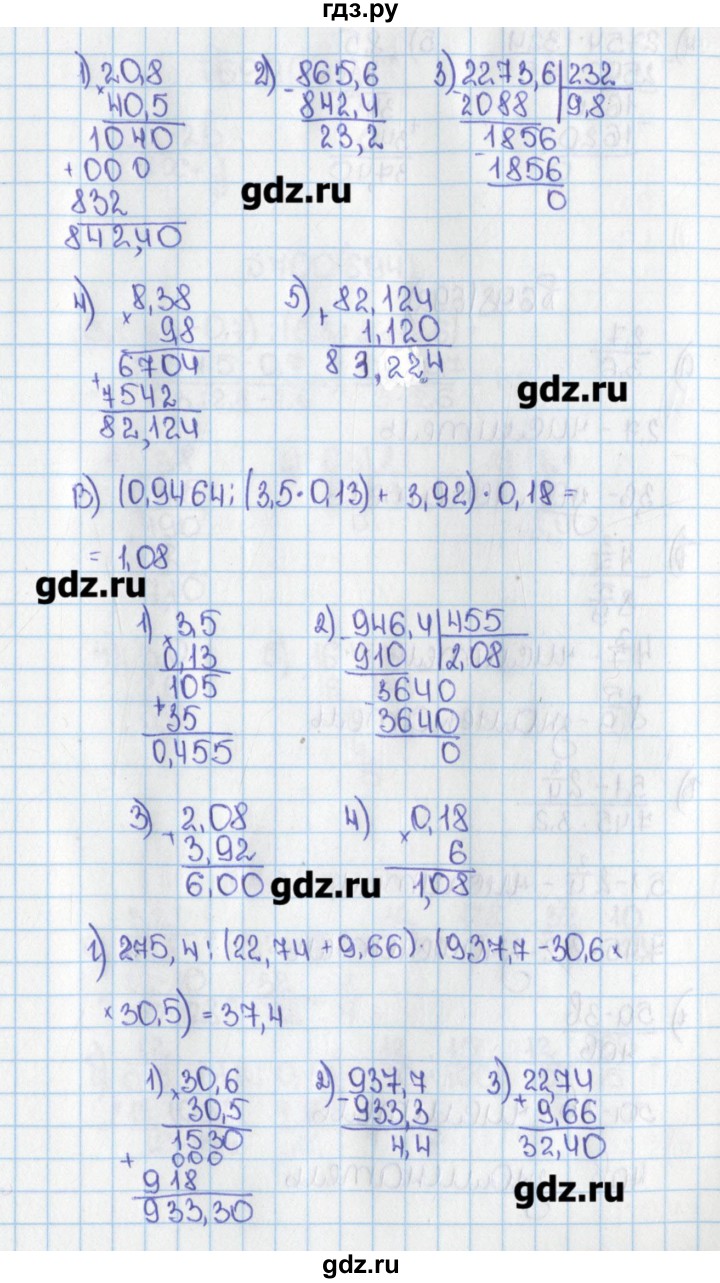 гдз.ру
1) 20,8 2) 865,6 3) 2273,6 232
× 40,5 - 842,4 - 2088 9,8
1040 23,2 1856
+ 000 - 1856
832 gdz.ru 0
842,40
4) 8,38 5) 82,124
× 9,8 + 1,120
6704 83,224
+ 7542 gdz.ru
82,124
в) (0,9464 : (3,5 · 0,13) + 3,92) · 0,18 =
= 1,08
gdz.ru
1) 3,5 2) 946,4 455
× 0,13 - 910 2,08
105 3640
+ 35 - 3640
0,455 0
3) 2,08 4) 0,18
+ 3,92 × 6
6,00 gdz.ru 1,08
г) 275,4 : (22,74 + 9,66) · (937,7 - 30,6 ×
× 30,5) = 37,4
1) 30,6 2) 937,7 3) 22,74
× 30,5 - 933,3 + 9,66
1530 4,4 32,40
+ 000
918 gdz.ru
933,30
gdz.ru